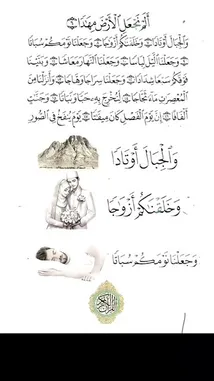 أَلَمْ نَجْعَلِ الْأَرْضَ مِهَٰدًا ۝٦
وَالْجِبَالَ أَوْتَادًا ۝٧ وَخَلَقْنَٰكُمْ أَزْوَٰجًا ۝٨ وَجَعَلْنَا نَوْمَكُمْ سُبَاتًا
۝٩ وَجَعَلْنَا الَّيْلَ لِبَاسًا ۝١٠ وَجَعَلْنَا النَّهَارَ مَعَاشًا ۝١١ وَبَنَيْنَا
فَوْقَكُمْ سَبْعًا شِدَادًا ۝١٢ وَجَعَلْنَا سِرَاجًا وَهَّاجًا ۝١٣ وَأَنزَلْنَا مِنَ
الْمُعْصِرَٰتِ مَآءً ثَجَّاجًا ۝١٤ لِّنُخْرِجَ بِهِۦ حَبًّا وَنَبَاتًا ۝١٥ وَجَنَّٰتٍ
أَلْفَافًا ۝١٦ إِنَّ يَوْمَ الْفَصْلِ كَانَ مِيقَٰتًا ۝١٧ يَوْمَ يُنفَخُ فِي الصُّورِ
وَالْجِبَالَ أَوْتَادًا
وَخَلَقْنَٰكُمْ أَزْوَٰجًا
وَجَعَلْنَا نَوْمَكُمْ سُبَاتًا